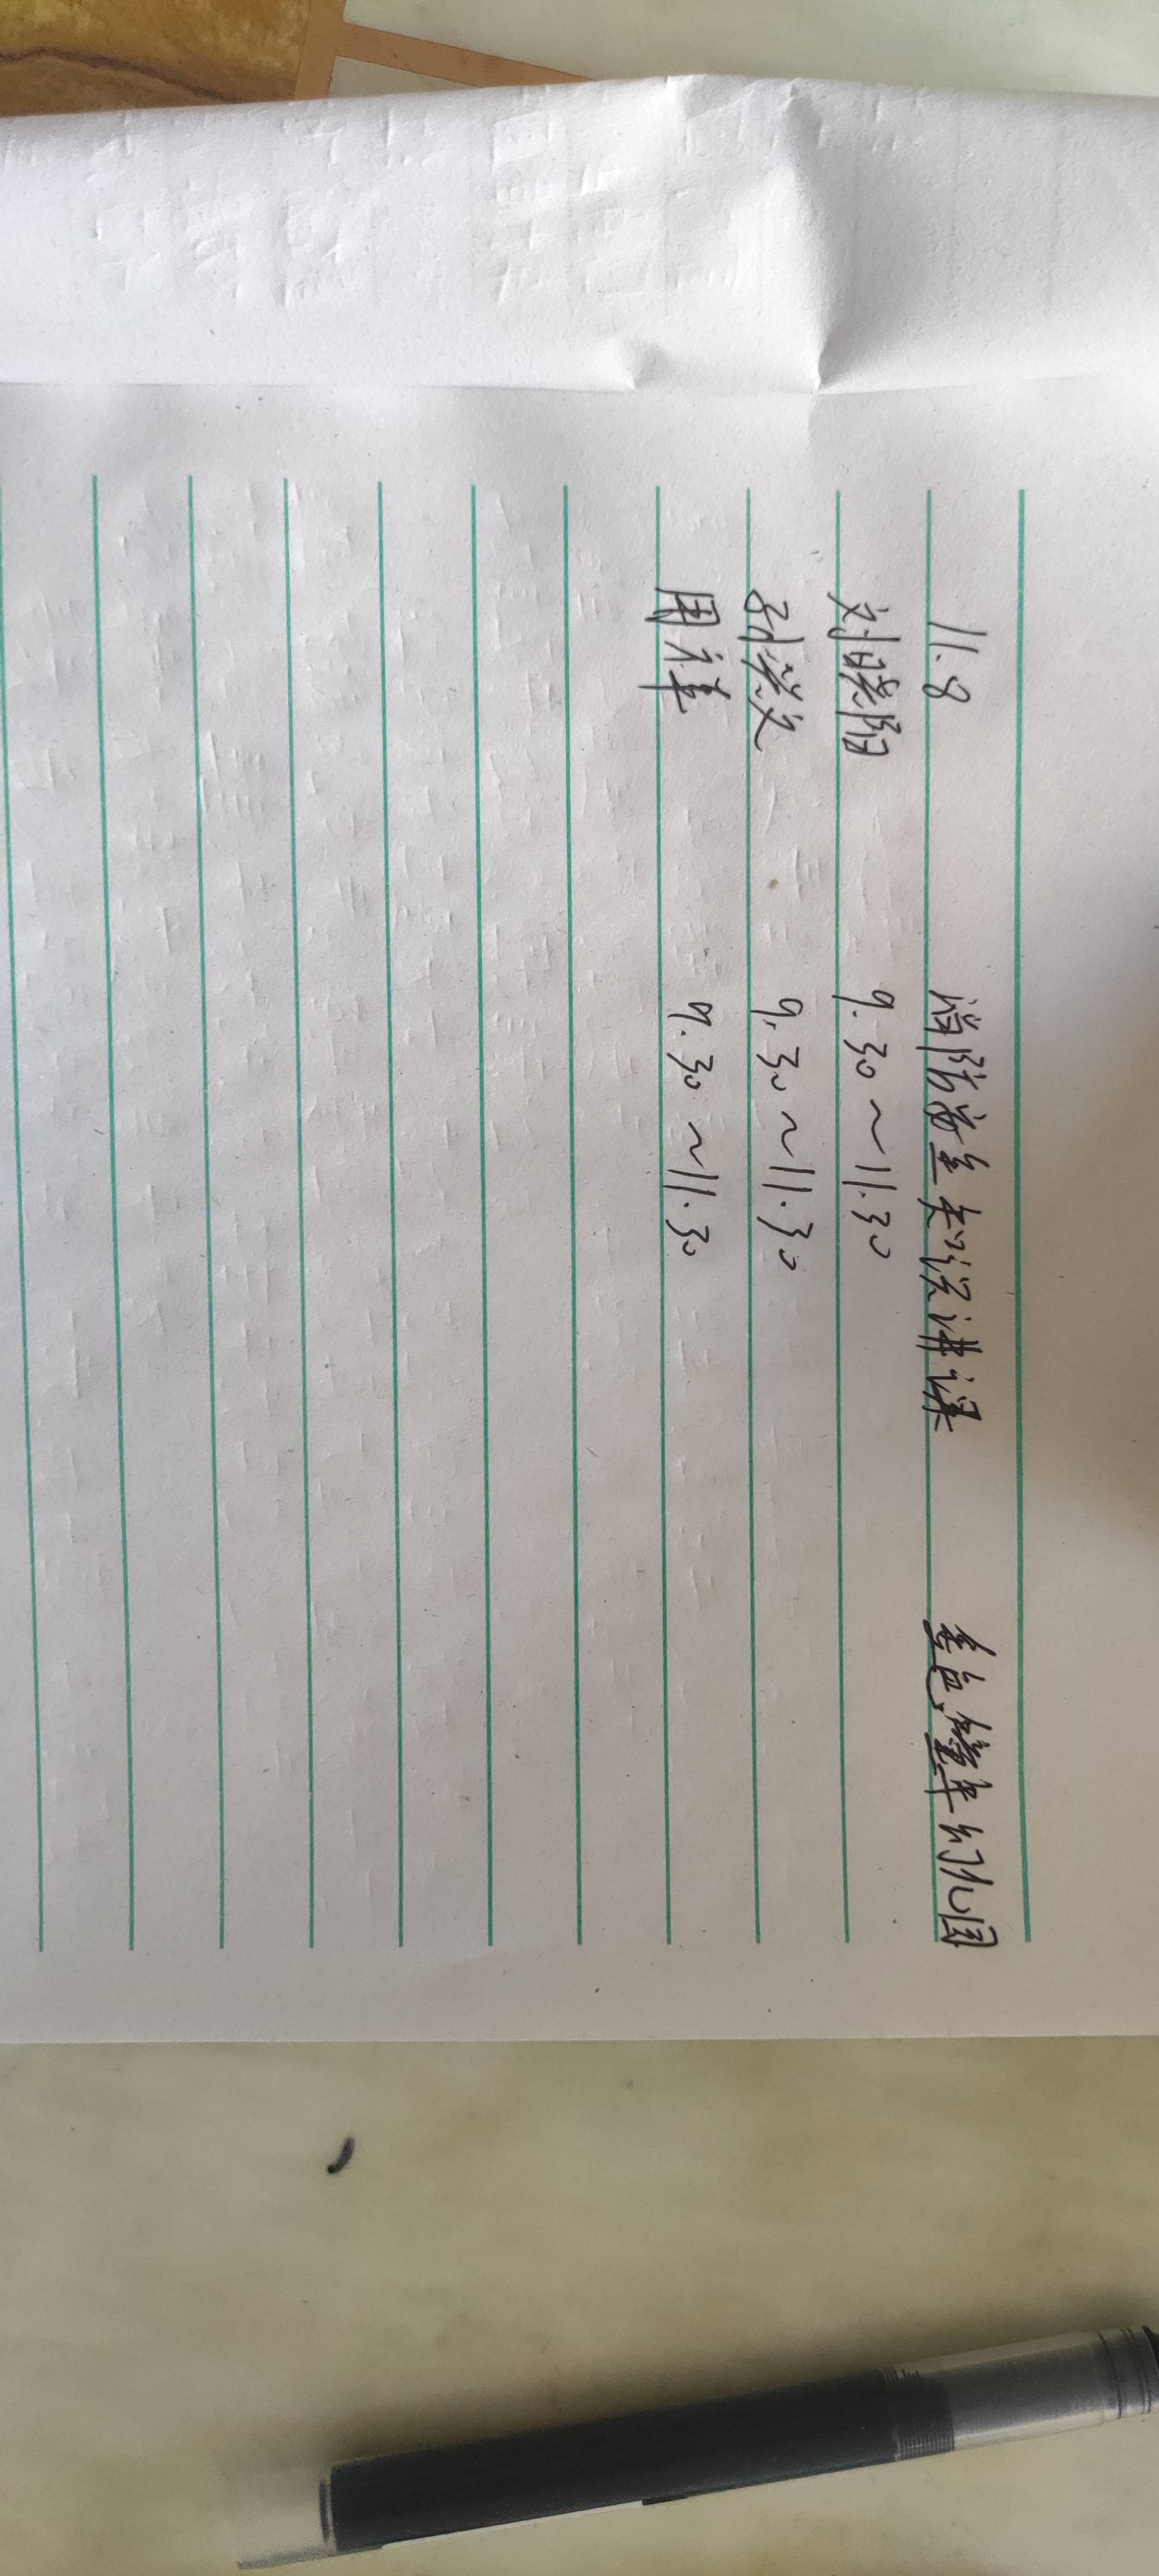 11.8 消防安全知识讲课 金色童年幼儿园
刘晓阳 9.30~11.30
孙 9.30~11.30
周 9.30~11.30